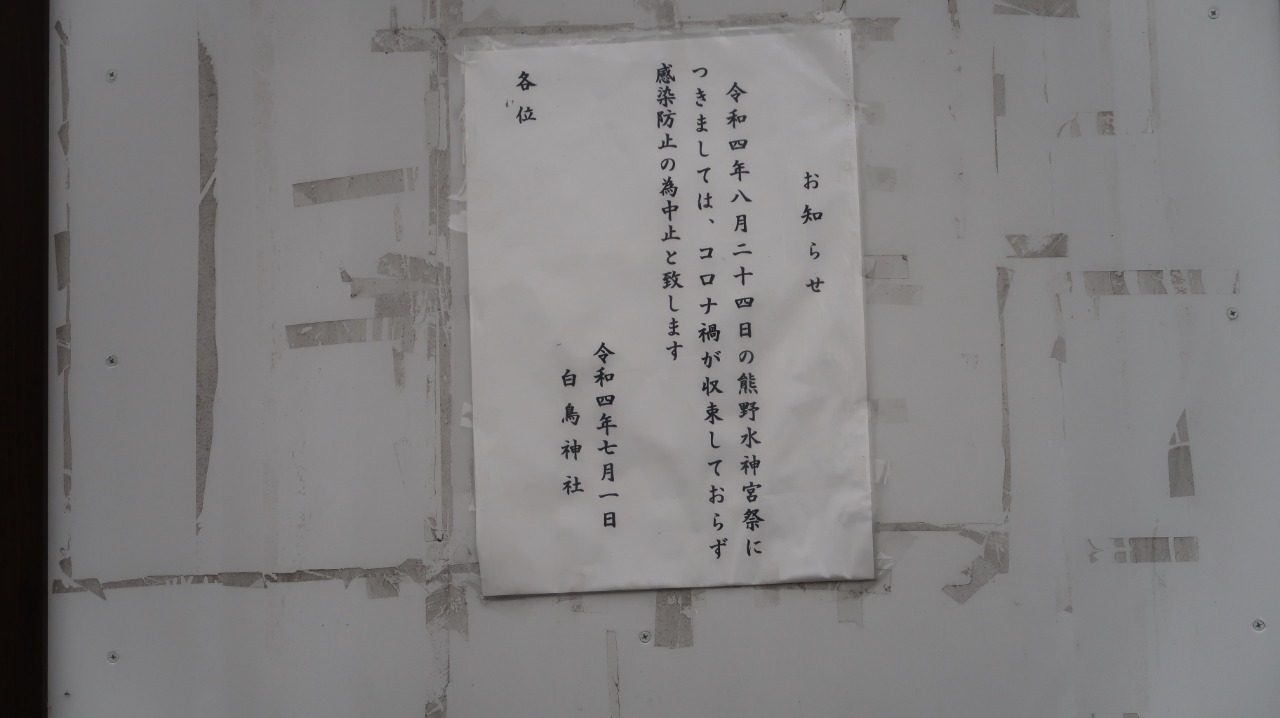 お知らせ
令和四年八月二十四日の熊野水神宮祭に
つきましては、コロナ禍が収束しておらず
感染防止の為中止と致します
令和四年七月一日
白鳥神社
各位